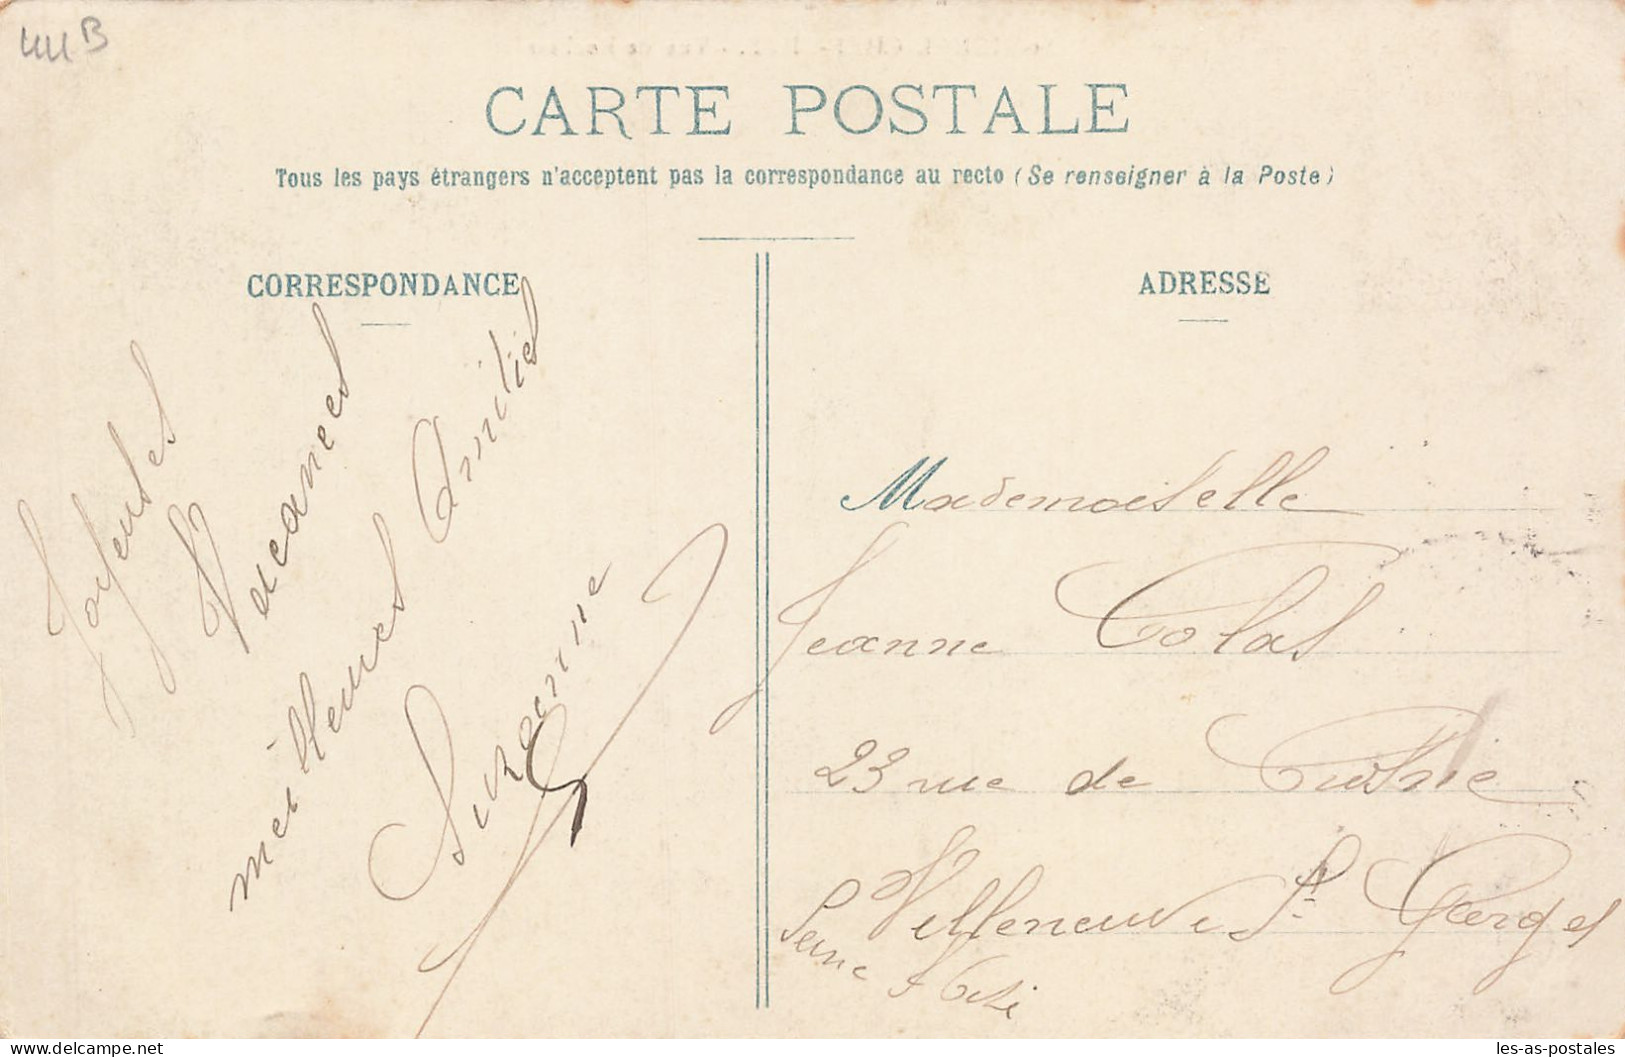 44B
CARTE POSTALE
Tous les pays étrangers n'acceptent pas la correspondance au recto (Se renseigner à la Poste)
CORRESPONDANCE
Joyeuses
Vacances
meilleures Amitiés
Suzanne
ADRESSE
Mademoiselle
Jeanne Colas
23 rue de
Villeneuve St Georges
Seine & Oise
les-as-postales.com